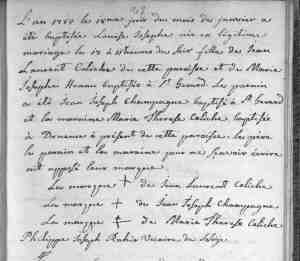 L'an
jour du mois de janvier a
été baptisée Louise Josephe née en légitime
mariage le 13 à heures du soir fille de Jean
Laurent Caliche de cette paroisse et de Marie
Josephe baptisée à St Gerard Le parrin
a été Jean Joseph Champagne baptisé à St Gerard
et la marraine Marie Therese Caliche baptisée
à à présent de cette paroisse le père
le parrin et la marraine pour ne savoir écrire
ont apposé leur marque
La marque + de Jean Laurent Caliche
La marque + de Jean Joseph Champagne
La marque + de Marie Therese Caliche
Philippe Joseph Vicaire de